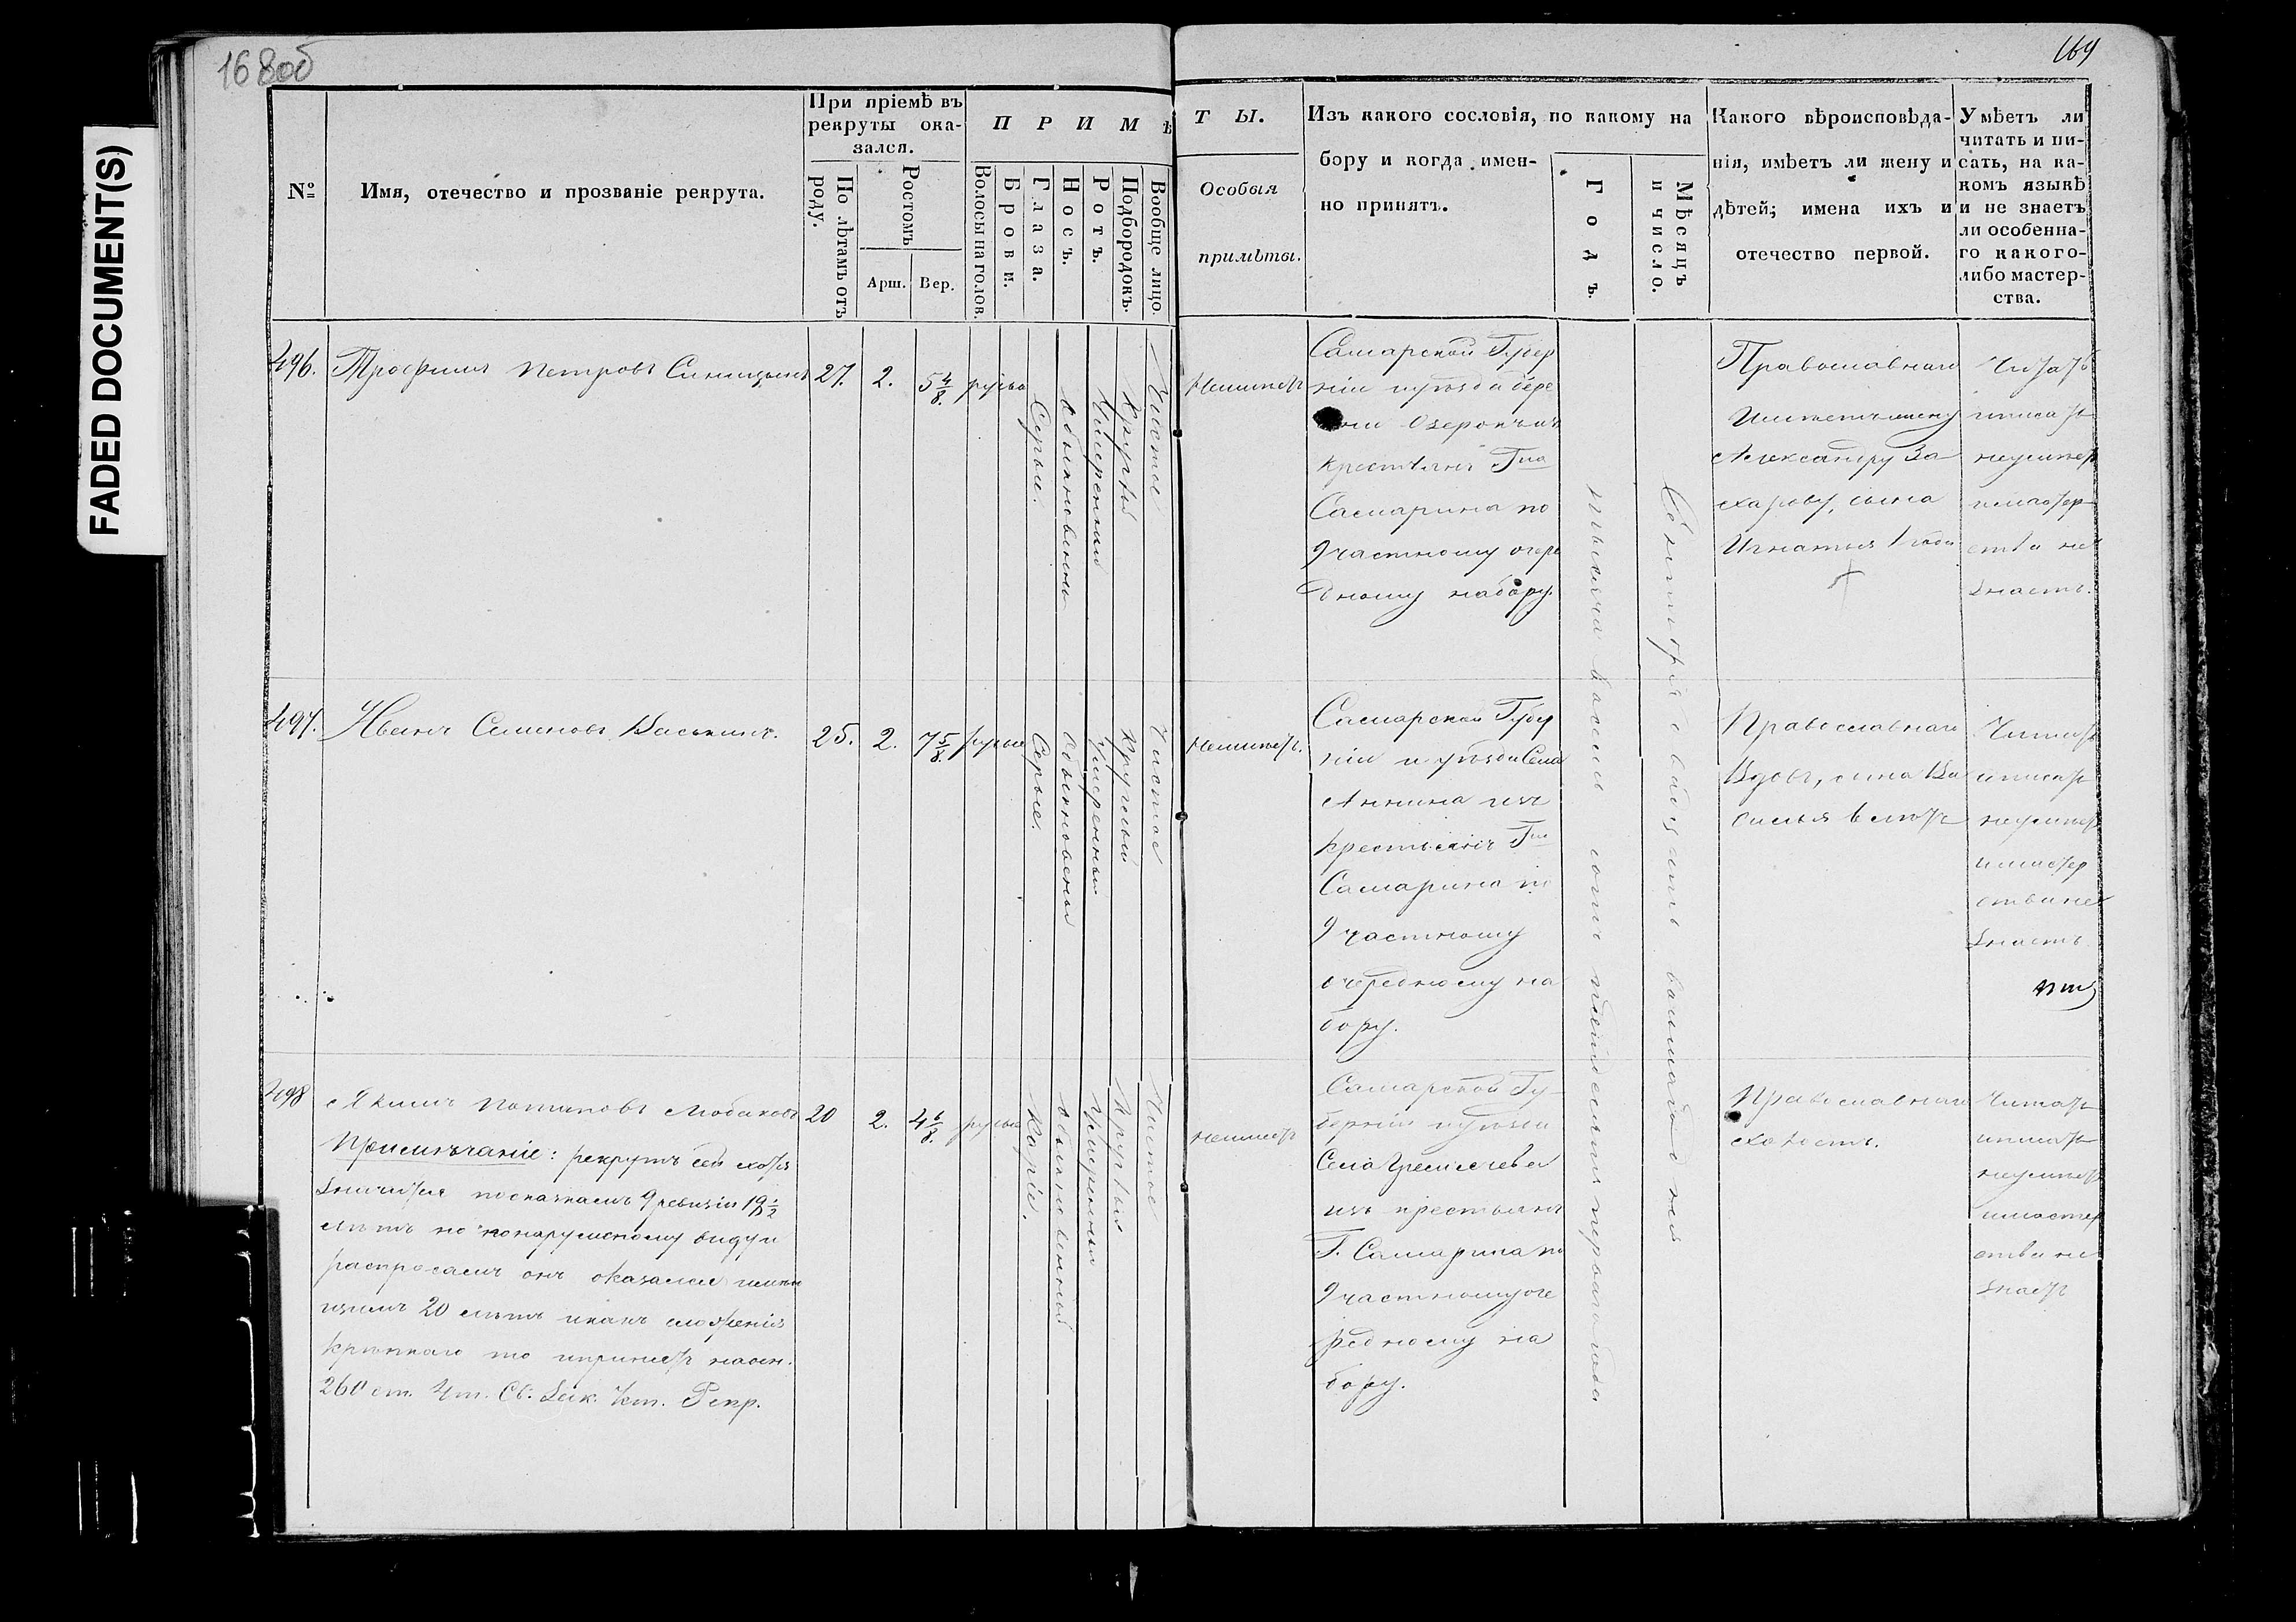 FADED DOCUMENT(S)
168об
169
№
Имя, отечество и прозваніе рекрута.
При пріемѣ въ
рекруты ока-
зался.
По лѣтамъ отъ
роду.
Ростомъ
Арш.
Вер.
ПРИМѢ
Волосы на голов.
Брови.
Глаза.
Носъ.
Ротъ.
Подбородокъ.
Вообще лицо.
ТЫ.
Особыя
примѣты.
Изъ какого сословія, по какому на
бору и когда имен-
но принятъ.
Годъ.
Мѣсяцъ
и число.
Какого вѣроисповѣда-
нія, имѣетъ ли жену и
дѣтей; имена ихъ и
отечество первой.
Умѣетъ ли
читать и пи-
сать, на ка-
комъ языкѣ
и не знаетъ
ли особенна-
го какого-
либо мастер-
ства.
496.
Трофимъ Петровъ Синицынъ
27.
2.
5 4/8.
русые
Серые.
Обыкновенный
Умеренный
Круглый
Чистое
Неимеетъ
Самарской Губер
ніи и уѣзда дере
вни
крестьянъ Гна
Самарина по
9 частному очере
дному набору.
тысяча восемь сотъ пятдесятъ перваго года
Сентября двадцать восьмаго дня
Православнаго
Имѣетъ жену
Александру За
харову, сына
Игнатья 1 года
Читать
и писать
неумѣетъ
и мастер
ства не
знаетъ.
497.
Иванъ Семеновъ Васькинъ.
25.
2.
7 5/8.
русые
Серые.
Обыкновенный
Умеренный
Круглый
Чистое
Неимѣетъ.
Самарской Губер
ніи и уѣзда Села
Аннина изъ
крестьянъ Гна
Самарина по
9 частному
очередному на
бору.
Православнаго
Вдовъ, сына Ва
силья 6 лѣтъ
Читать
и писать
неумѣетъ
и мастер
ства не
знаетъ
498
Якимъ Потаповъ Лобановъ
20
2.
4 6/8.
русые
Каріе.
Обыкновенный
Умеренный
Круглый
Чистое
неимеетъ
Примѣчаніе: рекрутъ сей хотя
значится по сказкамъ 9 ревизіи 19 1/2
лѣтъ но по наружному виду и
распросамъ онъ оказался имею
щимъ 20 лѣтъ и какъ сложенія
крѣпкаго то и принятъ на осн.
260 ст. 4 т. Св. Зак. Уст. Рекр.
Самарской Гу
берніи и уѣзда
Села
изъ крестьянъ
Г. Самарина по
9 частному оче
редному на
бору.
Православнаго
холостъ.
Читать
и писать
неумѣетъ
и мастер
ства не
знаетъ